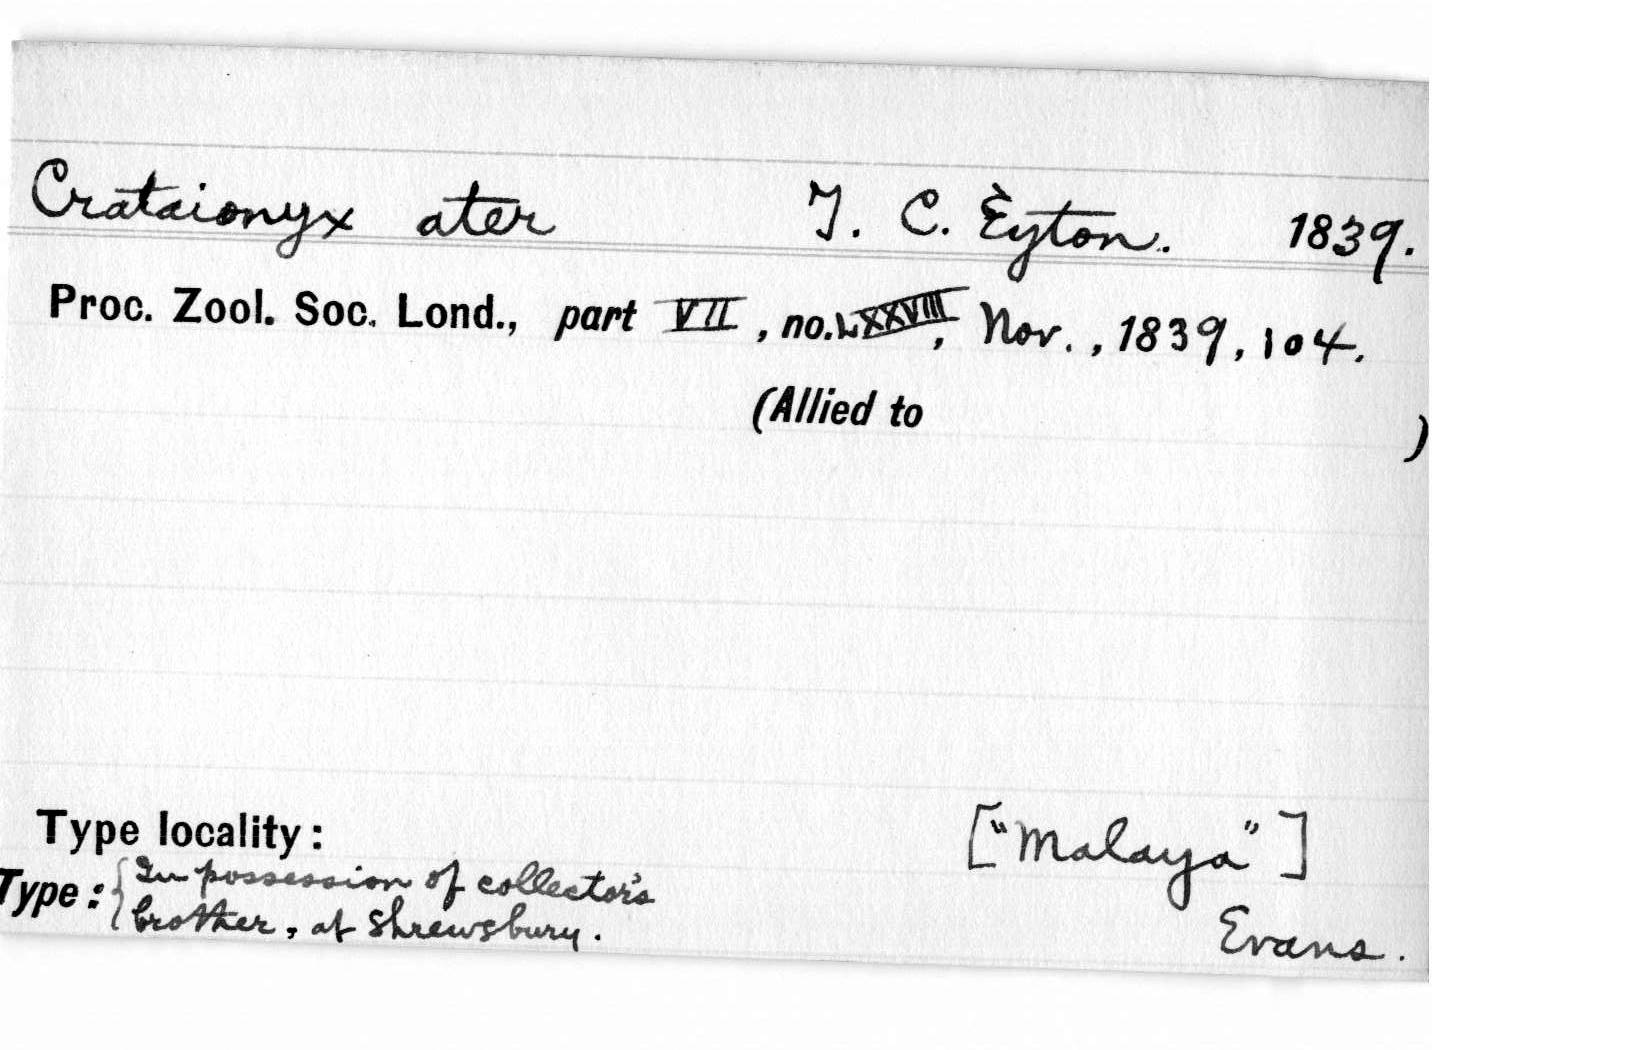 Crataionyx ater T. C. Eyton. 1839.
Proc. Zool. Soc. Lond., part VII, no. LXXVIII, Nov., 1839, 104.
(Allied to )
Type locality: ["Malaya"]
Type: {In possession of collector's
brother, at Shrewsbury.
Evans.